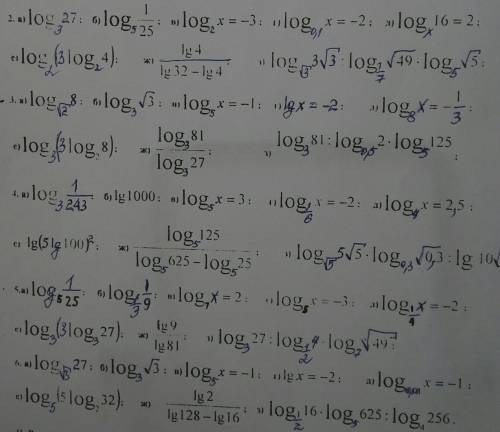 2. а) log₃27; б) log₅ 1/25; в) log₂ x = −3; г) log₀,₁ x = −2; д) logₓ 16 = 2;
е) log₂(3 log₂ 4); ж) lg 4 / (lg 32 − lg 4); з) log_√3 3√3 : log_1/7 √49 · log₅ √5;
3. а) log_√2 8; б) log₃ √3; в) log₅ x = −1; г) lg x = −2; д) log₈ x = −1/3;
е) log₃(3 log₂ 8); ж) log₃ 81 / log₃ 27; з) log₃ 81 : log₀,₅ 2 · log₅ 125;
4. а) log₃ 1/243; б) lg 1000; в) log₅ x = 3; г) log_1/6 x = −2; д) log₄ x = 2,5;
е) lg(5 lg 100)²; ж) log₅ 125 / (log₅ 625 − log₅ 25); з) log_√5 5√5 · log₀,₃ √0,3 : lg 10√
5. а) log₅ 1/525; б) log_1/3 1/9; в) log₇ x = 2; г) log₅ x = −3; д) log_1/4 x = −2;
е) log₃(3 log₃ 27); ж) lg 9 / lg 81; з) log₃ 27 : log_1/2 4 · log₇ √49;
6. а) log_√3 27; б) log₃ √3; в) log₅ x = −1; г) lg x = −2; д) log₀,₀₁ x = −1;
е) log₅(5 log₂ 32); ж) lg 2 / (lg 128 − lg 16); з) log_1/2 16 · log₅ 625 : log₄ 256.